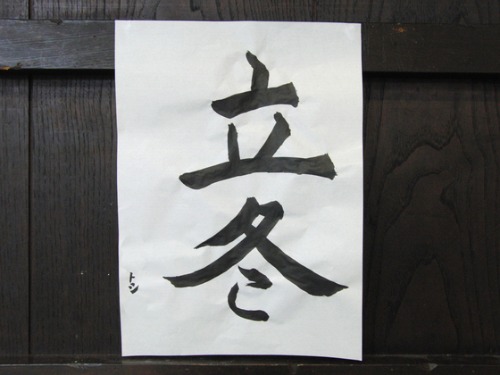 立冬
トシ